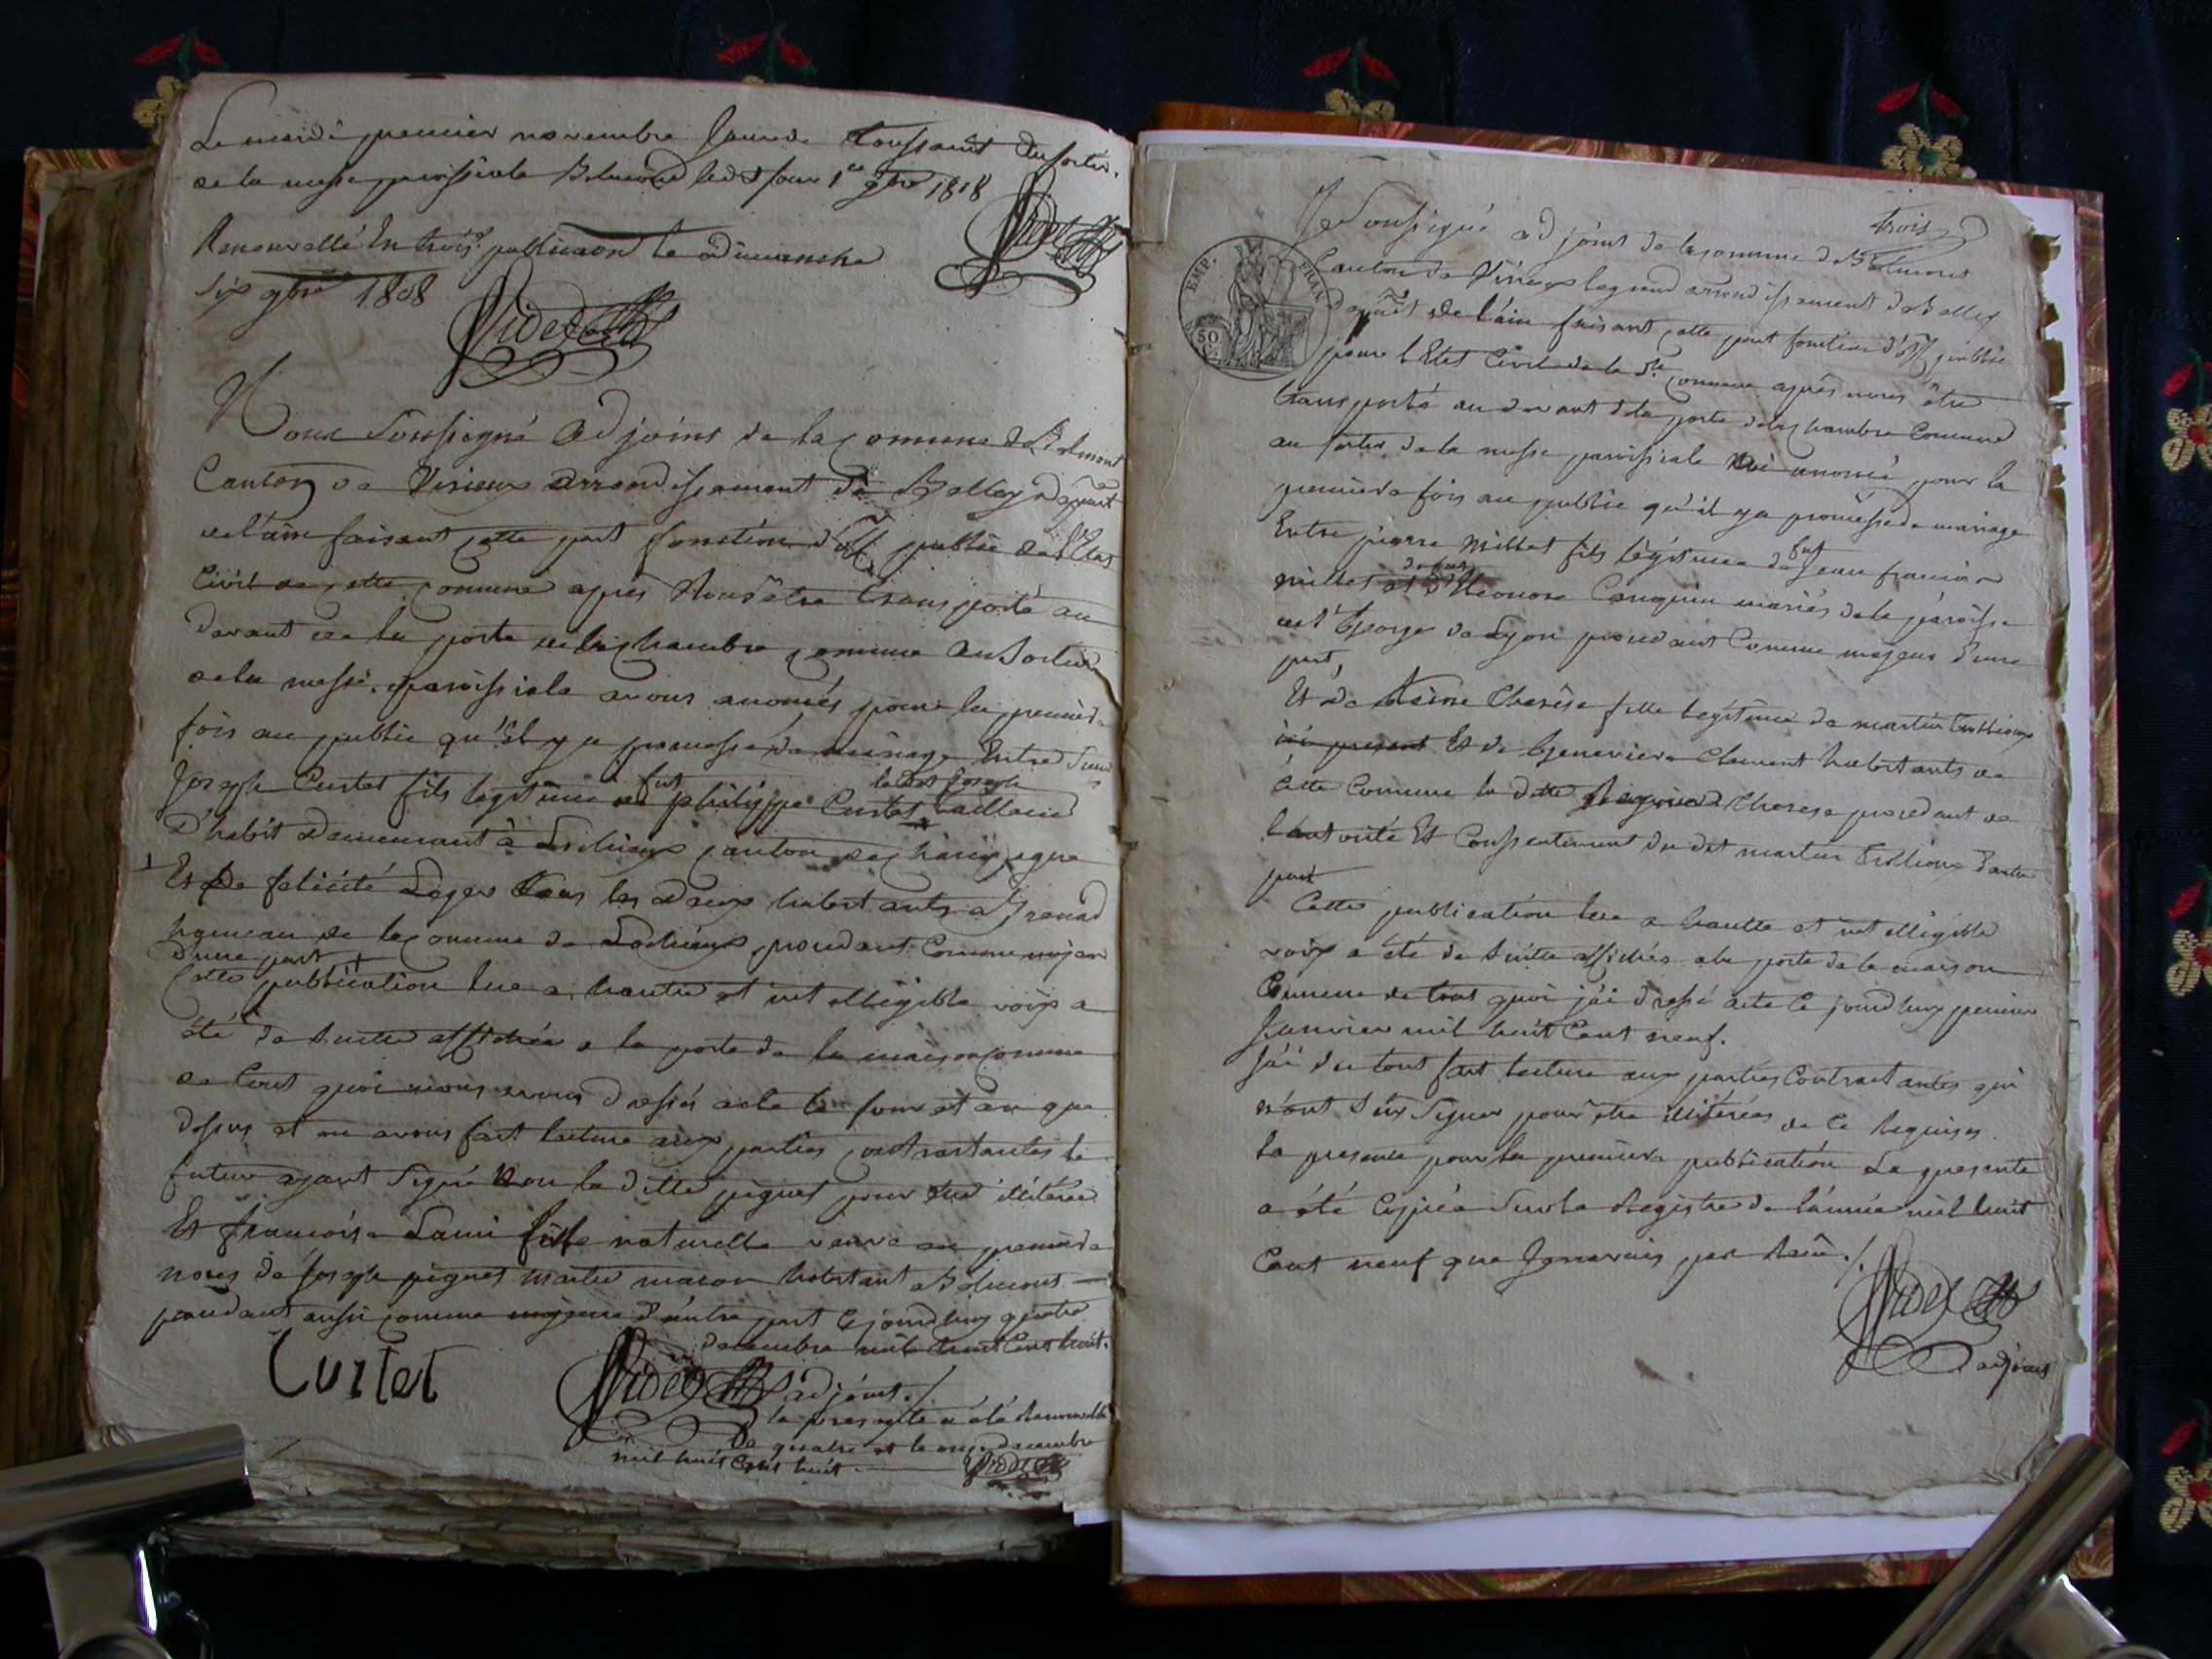 Le mardi premier novembre Jour de toussaint au sortir
de la messe paroissiale Belmond led jour 1er 9bre 1808
Videt
Renouvellé la trois. publicaon le dimanche
Six 9bre 1808
Videt
Nous Soussigné Adjoint de la Comune de Belmont
Canton de Virieux arrondissement de Belley depart
de l'ain faisant cette part fonction d'off. public de l'Etat
Civil de cette Comune après Nous être transporté au
devant de la porte de la chambre comune au Sortir
de la messe paroissiale avons anoncés pour la premiere
fois au public qu'il y a promesse de mariage Entre Sieur
Joseph Curtet fils legitime de fut philippe Curtet ledit Joseph tailleur
D'habit demeurant à Lochieux canton de champagne
Et de felicité Loger tous les deux habitants a
hameau de la Comune de Lochieux procedant Comme majeur
d'une part +
Cette publication lue a haute et intelligible voix a
été de suitte affichée a la porte de la maison comune
de tout quoi nous avons dressés acte le jour et an que
dessus et en avons fait lecture aux parties contractantes le
futur ayant Signé Non la ditte piquet pour être illiterée
Et francoise Lami fille naturelle veuve en premiere
noces de joseph piquet maitre macon habitant a Belmont
procedant aussi comme majeure d'autre part Cejourd'huy quatre
decembre mil huit Cent huit.
Curtet
Videt adjoint ./
la presente a été Renouvellé
Le quatre et le onze decembre
mil huit Cent huit
Videt
trois
EMP. FRAN.
50
C.
Je Soussigné adjoint de la comune de Belmont
Canton de Virieux le grand arrondissement de Belley
depart de l'ain faisant cette part fonction d'off. public
pour l'Etat Civil de la de. Comune après nous être
transporté au devant de la porte de la chambre Comune
au sortir de la messe paroissiale ai anoncé pour la
premiere fois au public qu'il y a promesse de mariage
Entre pierre Millet fils légitime de fut Jean francois
millet et de fut Eleonore Canquin mariés de la paroisse
de St George de Lyon procedant Comme majeur d'une
part,
Et de Reine Therèse fille legitime de martin trollioux
ici present Et de Genevieve Clement habitants de
Cette Comune la ditte Therese procedant de
l'autorité Et Consentement du dit martin trollioux d'autre
part
Cette publication lue a hautte et intelligible
voix a été de suitte affichée a la porte de la maison
Comune de tout quoi j'ai dressé acte Ce jourd'huy premier
Janvier mil huit Cent neuf.
J'ai du tout fait lecture aux parties Contractantes qui
n'ont Sceu Signer pour être illiterées de Ce Requises.
la presente pour la premiere publication La presente
a été Copiée Sur le Registre de l'année mil huit
Cent neuf que Jgnorais par ./.
Videt
adjoint